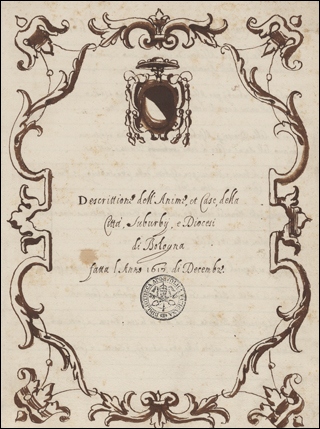 Descrittione dell'Anime, et Case della
Città, Suburby, e Diocesi
di Bologna
fatta l'Anno 1617. di Decembre